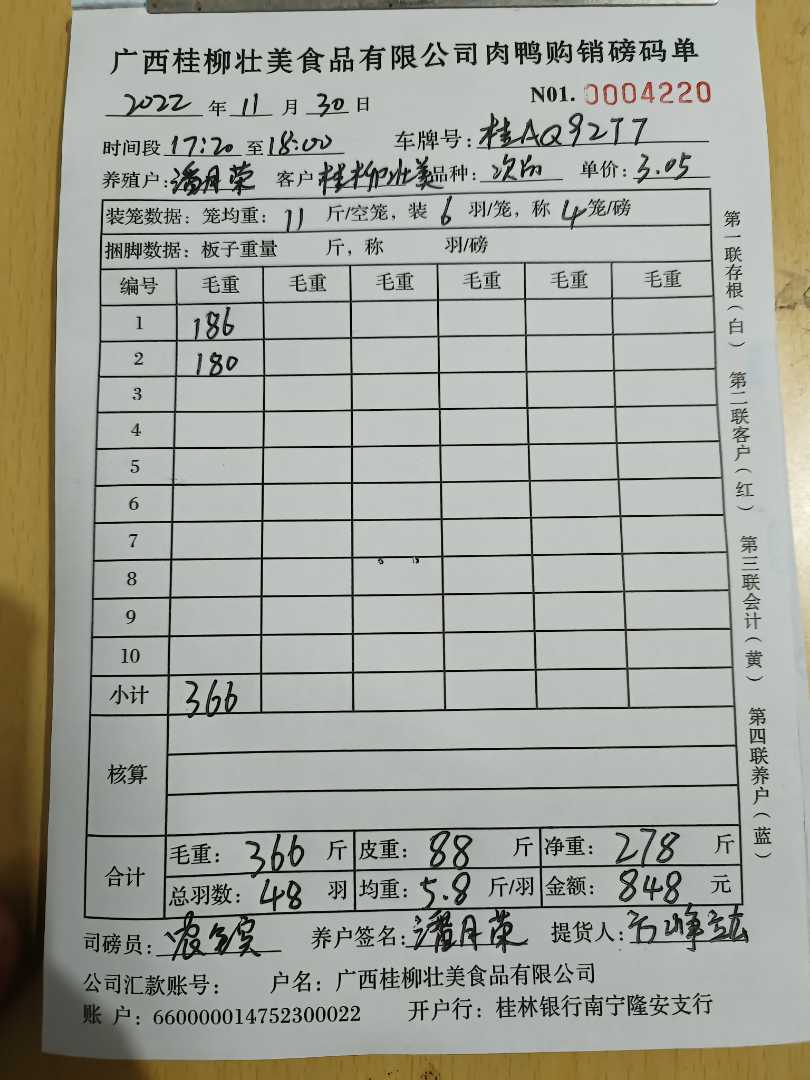 广西桂柳壮美食品有限公司肉鸭购销磅码单
2022 年 11 月 30 日 N01. 0004220
时间段 17:20 至 18:00 车牌号: 桂AQ92T7
养殖户: 潘月荣 客户 桂柳壮美 品种: 次 单价: 3.05
装笼数据: 笼均重: 11 斤/空笼, 装 6 羽/笼, 称 4 笼/磅
捆脚数据: 板子重量 斤, 称 羽/磅
编号 毛重 毛重 毛重 毛重 毛重 毛重
1 186
2 180
3
4
5
6
7
8
9
10
小计 366
核算
合计 毛重: 366 斤 皮重: 88 斤 净重: 278 斤
总羽数: 48 羽 均重: 5.8 斤/羽 金额: 848 元
司磅员: 养户签名: 潘月荣 提货人:
公司汇款账号: 户名: 广西桂柳壮美食品有限公司
账 户: 660000014752300022 开户行: 桂林银行南宁隆安支行
第一联存根(白) 第二联客户(红) 第三联会计(黄) 第四联养户(蓝)